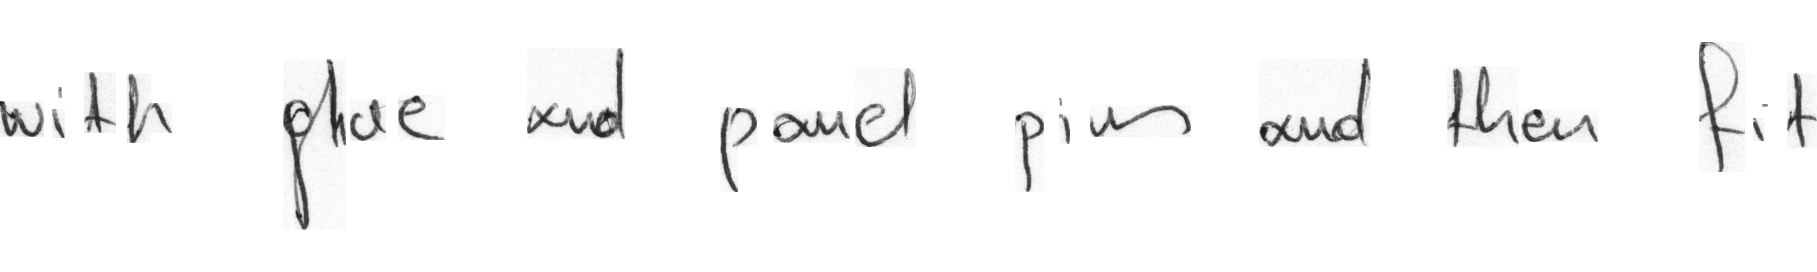 with glue and panel pins and then fit